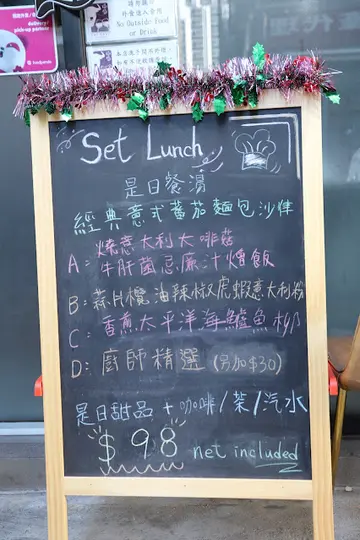 foodpanda
請勿攜帶
外食進入食肆
No Outside Food
or Drink
Set Lunch
是日餐湯
經典意式蕃茄麵包沙律
A: 燒意大利大啡菇
牛肝菌忌廉汁燴飯
B: 蒜片欖油辣椒虎蝦意大利粉
C: 香煎太平洋海鱸魚柳
D: 廚師精選 (另加$30)
是日甜品 + 咖啡/茶/汽水
$ 98 net included